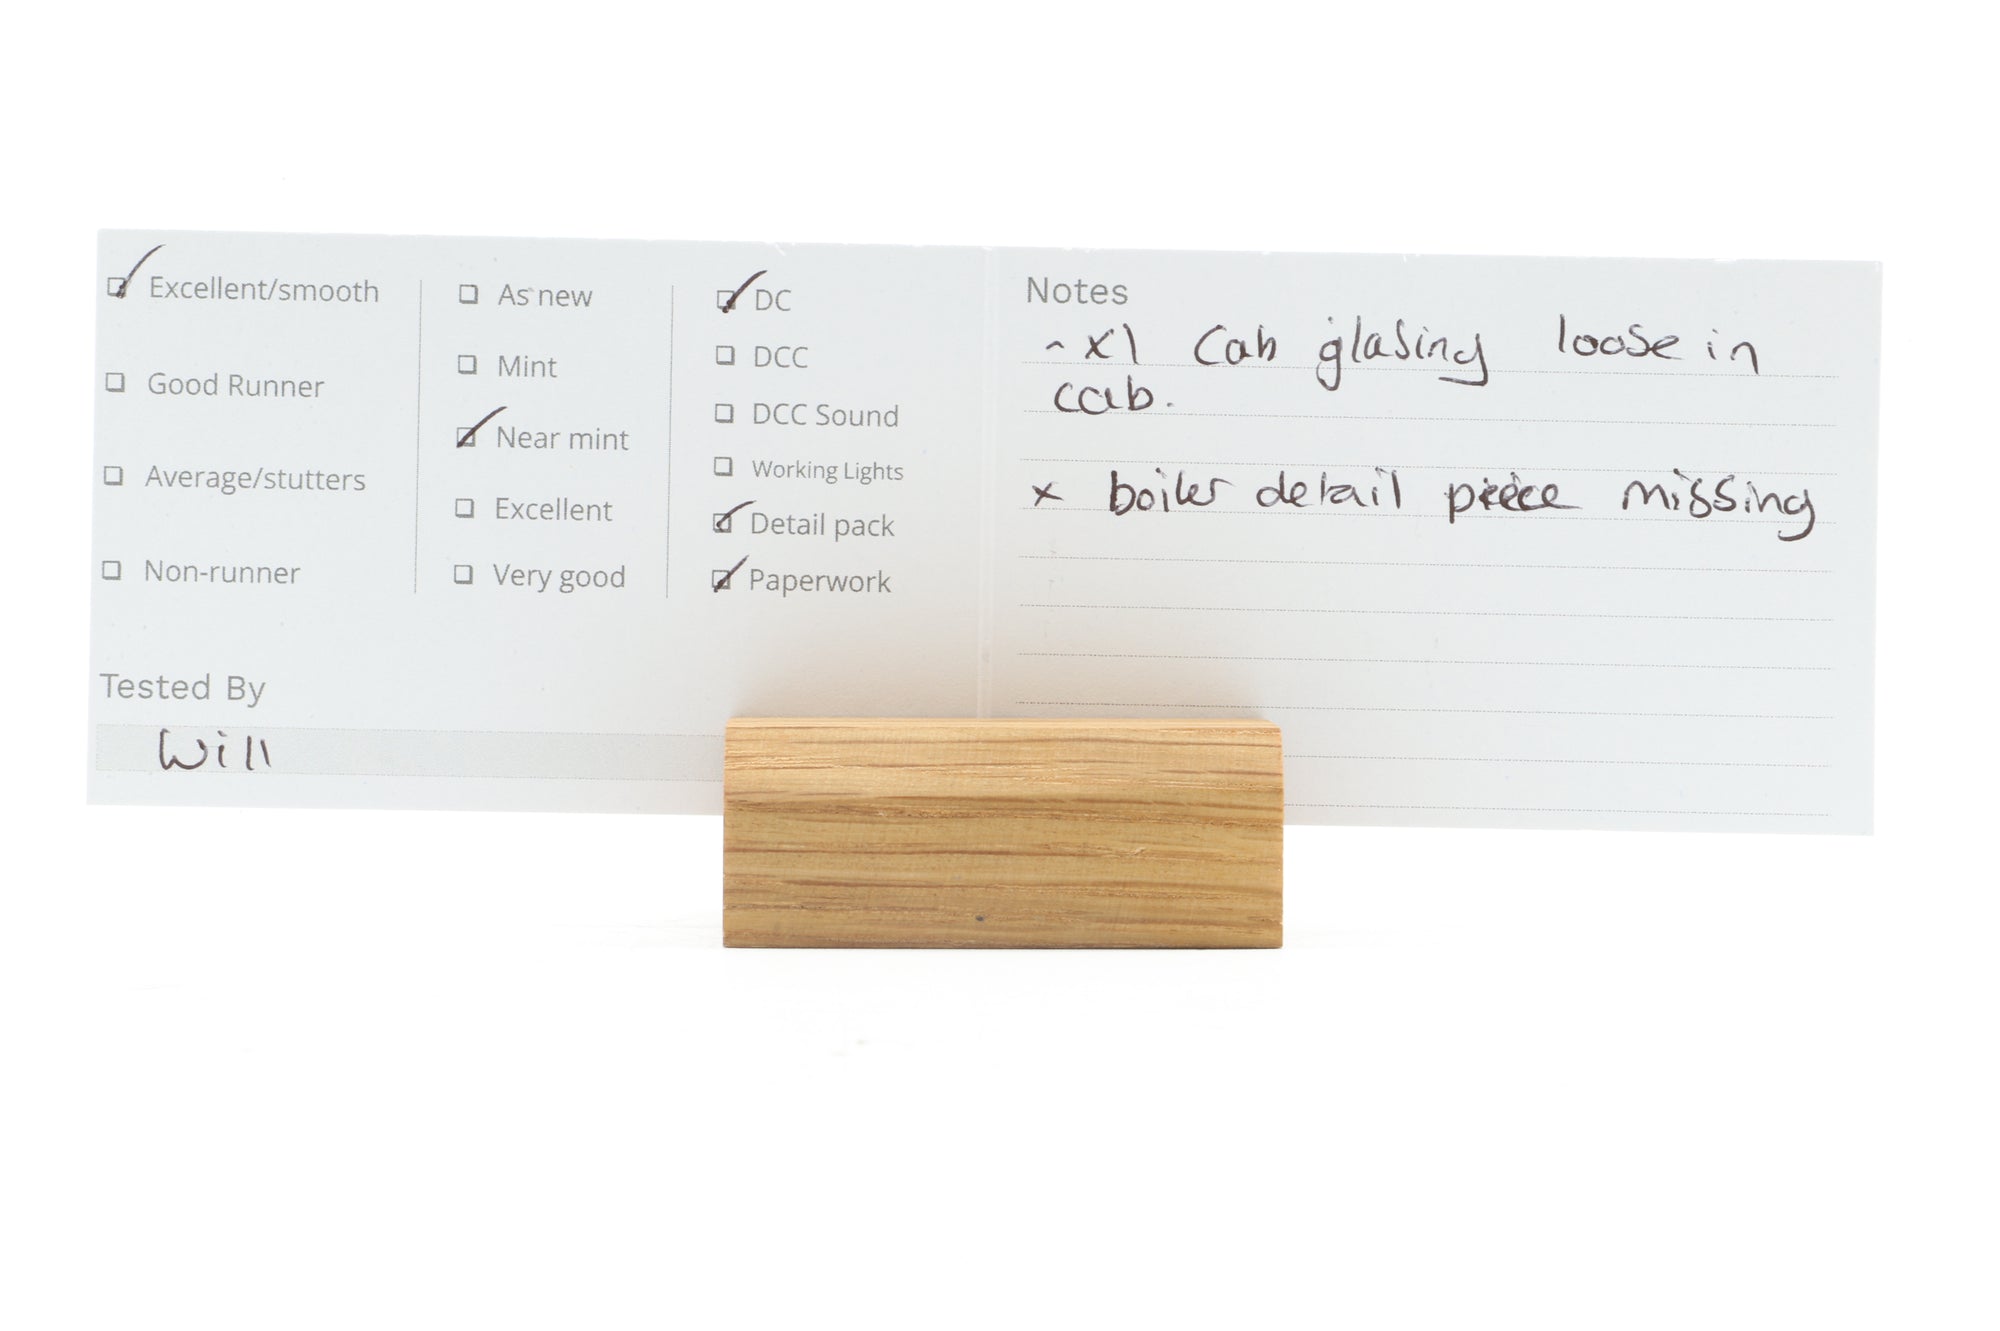 Excellent/smooth
Good Runner
Average/stutters
Non-runner
As new
Mint
Near mint
Excellent
Very good
DC
DCC
DCC Sound
Working Lights
Detail pack
Paperwork
Tested By
Will
Notes
- x1 Cab glasing loose in
cab.
x boiler detail piece missing